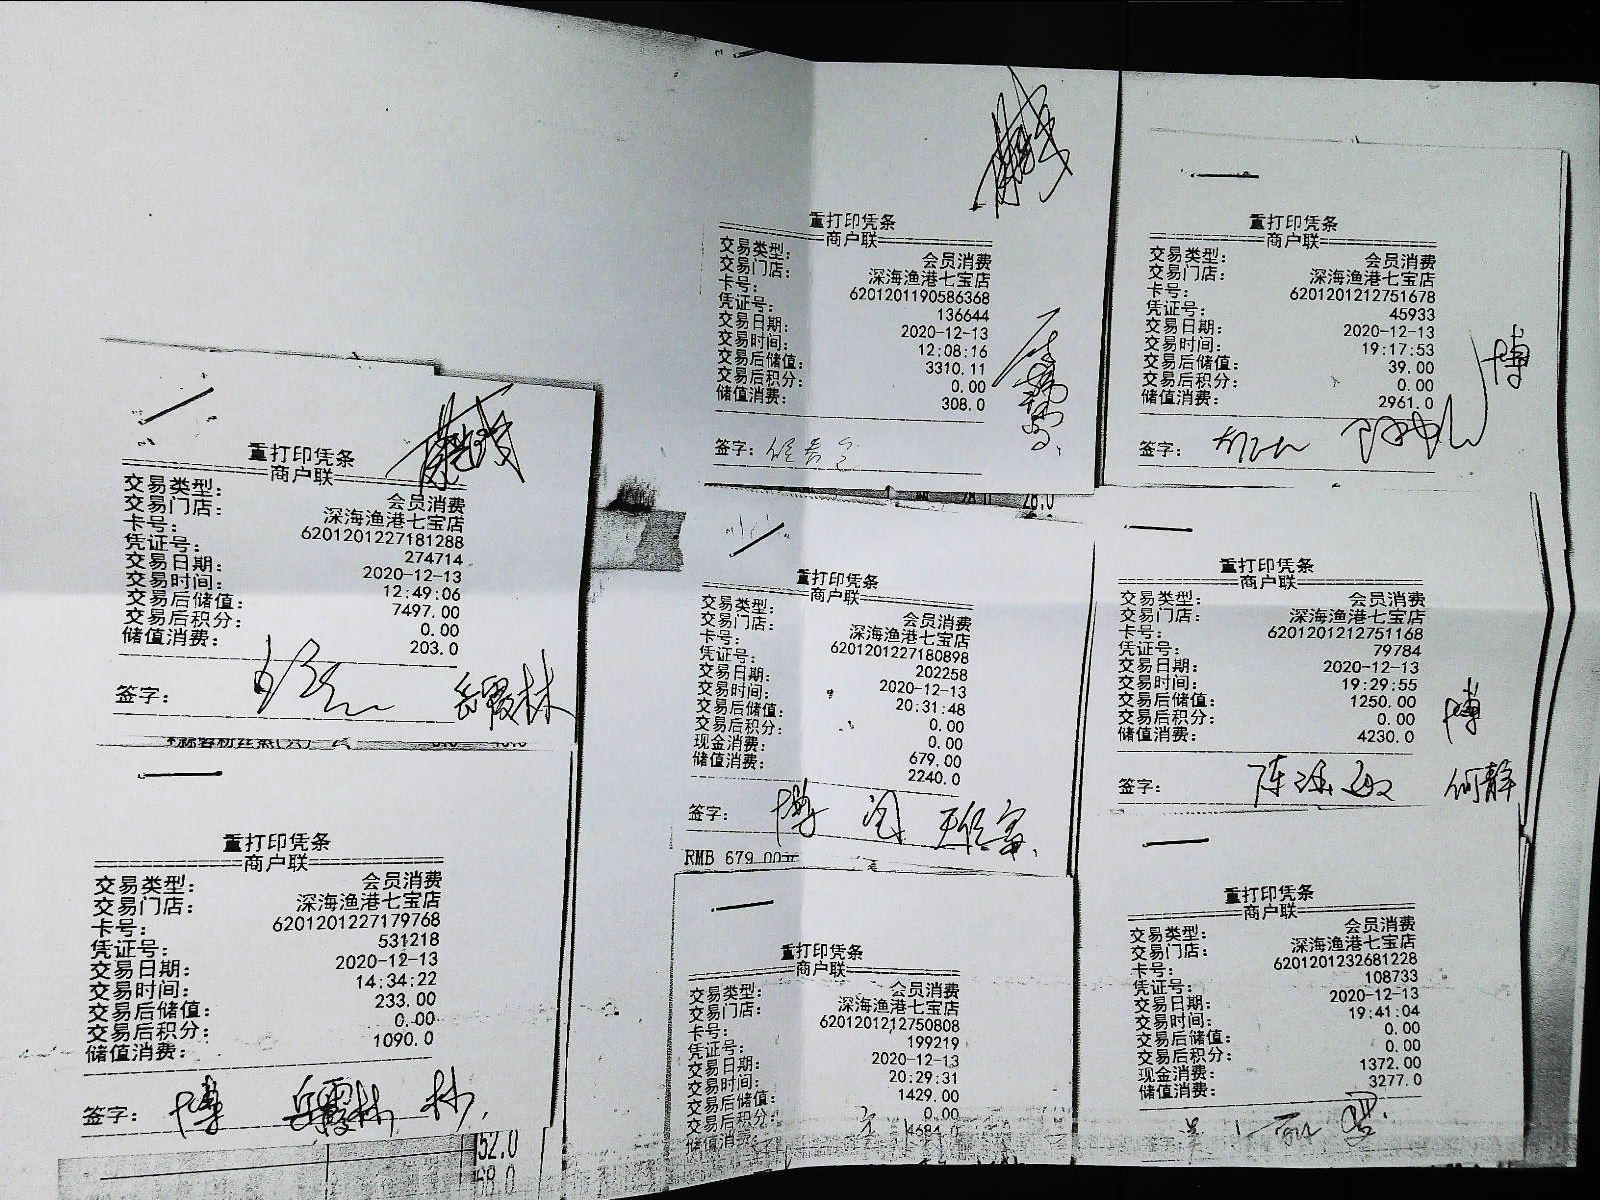 重打印凭条
商户联
交易类型： 会员消费
交易门店： 深海渔港七宝店
卡号： 6201201227181288
凭证号： 274714
交易日期： 2020-12-13
交易时间： 12:49:06
交易后储值： 7497.00
交易后积分： 0.00
储值消费： 203.0
签字： 岳霞林
重打印凭条
商户联
交易类型： 会员消费
交易门店： 深海渔港七宝店
卡号： 6201201227179768
凭证号： 531218
交易日期： 2020-12-13
交易时间： 14:34:22
交易后储值： 233.00
交易后积分： 0.00
储值消费： 1090.0
签字： 博 岳霞林 林
52.0
68.0
重打印凭条
商户联
交易类型： 会员消费
交易门店： 深海渔港七宝店
卡号： 6201201190586368
凭证号： 136644
交易日期： 2020-12-13
交易时间： 12:08:16
交易后储值： 3310.11
交易后积分： 0.00
储值消费： 308.0
签字：
28.0
重打印凭条
商户联
交易类型： 会员消费
交易门店： 深海渔港七宝店
卡号： 6201201227180898
凭证号： 202258
交易日期： 2020-12-13
交易时间： 20:31:48
交易后储值： 0.00
交易后积分： 0.00
现金消费： 679.00
储值消费： 2240.0
签字： 博
RMB 679.00元
重打印凭条
商户联
交易类型： 会员消费
交易门店： 深海渔港七宝店
卡号： 6201201212750808
凭证号： 199219
交易日期： 2020-12-13
交易时间： 20:29:31
交易后储值： 1429.00
交易后积分： 0.00
储值消费： 4684.0
重打印凭条
商户联
交易类型： 会员消费
交易门店： 深海渔港七宝店
卡号： 6201201212751678
凭证号： 45933
交易日期： 2020-12-13
交易时间： 19:17:53
交易后储值： 39.00
交易后积分： 0.00
储值消费： 2961.0
博
签字：
重打印凭条
商户联
交易类型： 会员消费
交易门店： 深海渔港七宝店
卡号： 6201201212751168
凭证号： 79784
交易日期： 2020-12-13
交易时间： 19:29:55
交易后储值： 1250.00
交易后积分： 0.00
储值消费： 4230.0
博
签字： 何静
重打印凭条
商户联
交易类型： 会员消费
交易门店： 深海渔港七宝店
卡号： 6201201232681228
凭证号： 108733
交易日期： 2020-12-13
交易时间： 19:41:04
交易后储值： 0.00
交易后积分： 0.00
现金消费： 1372.00
储值消费： 3277.0